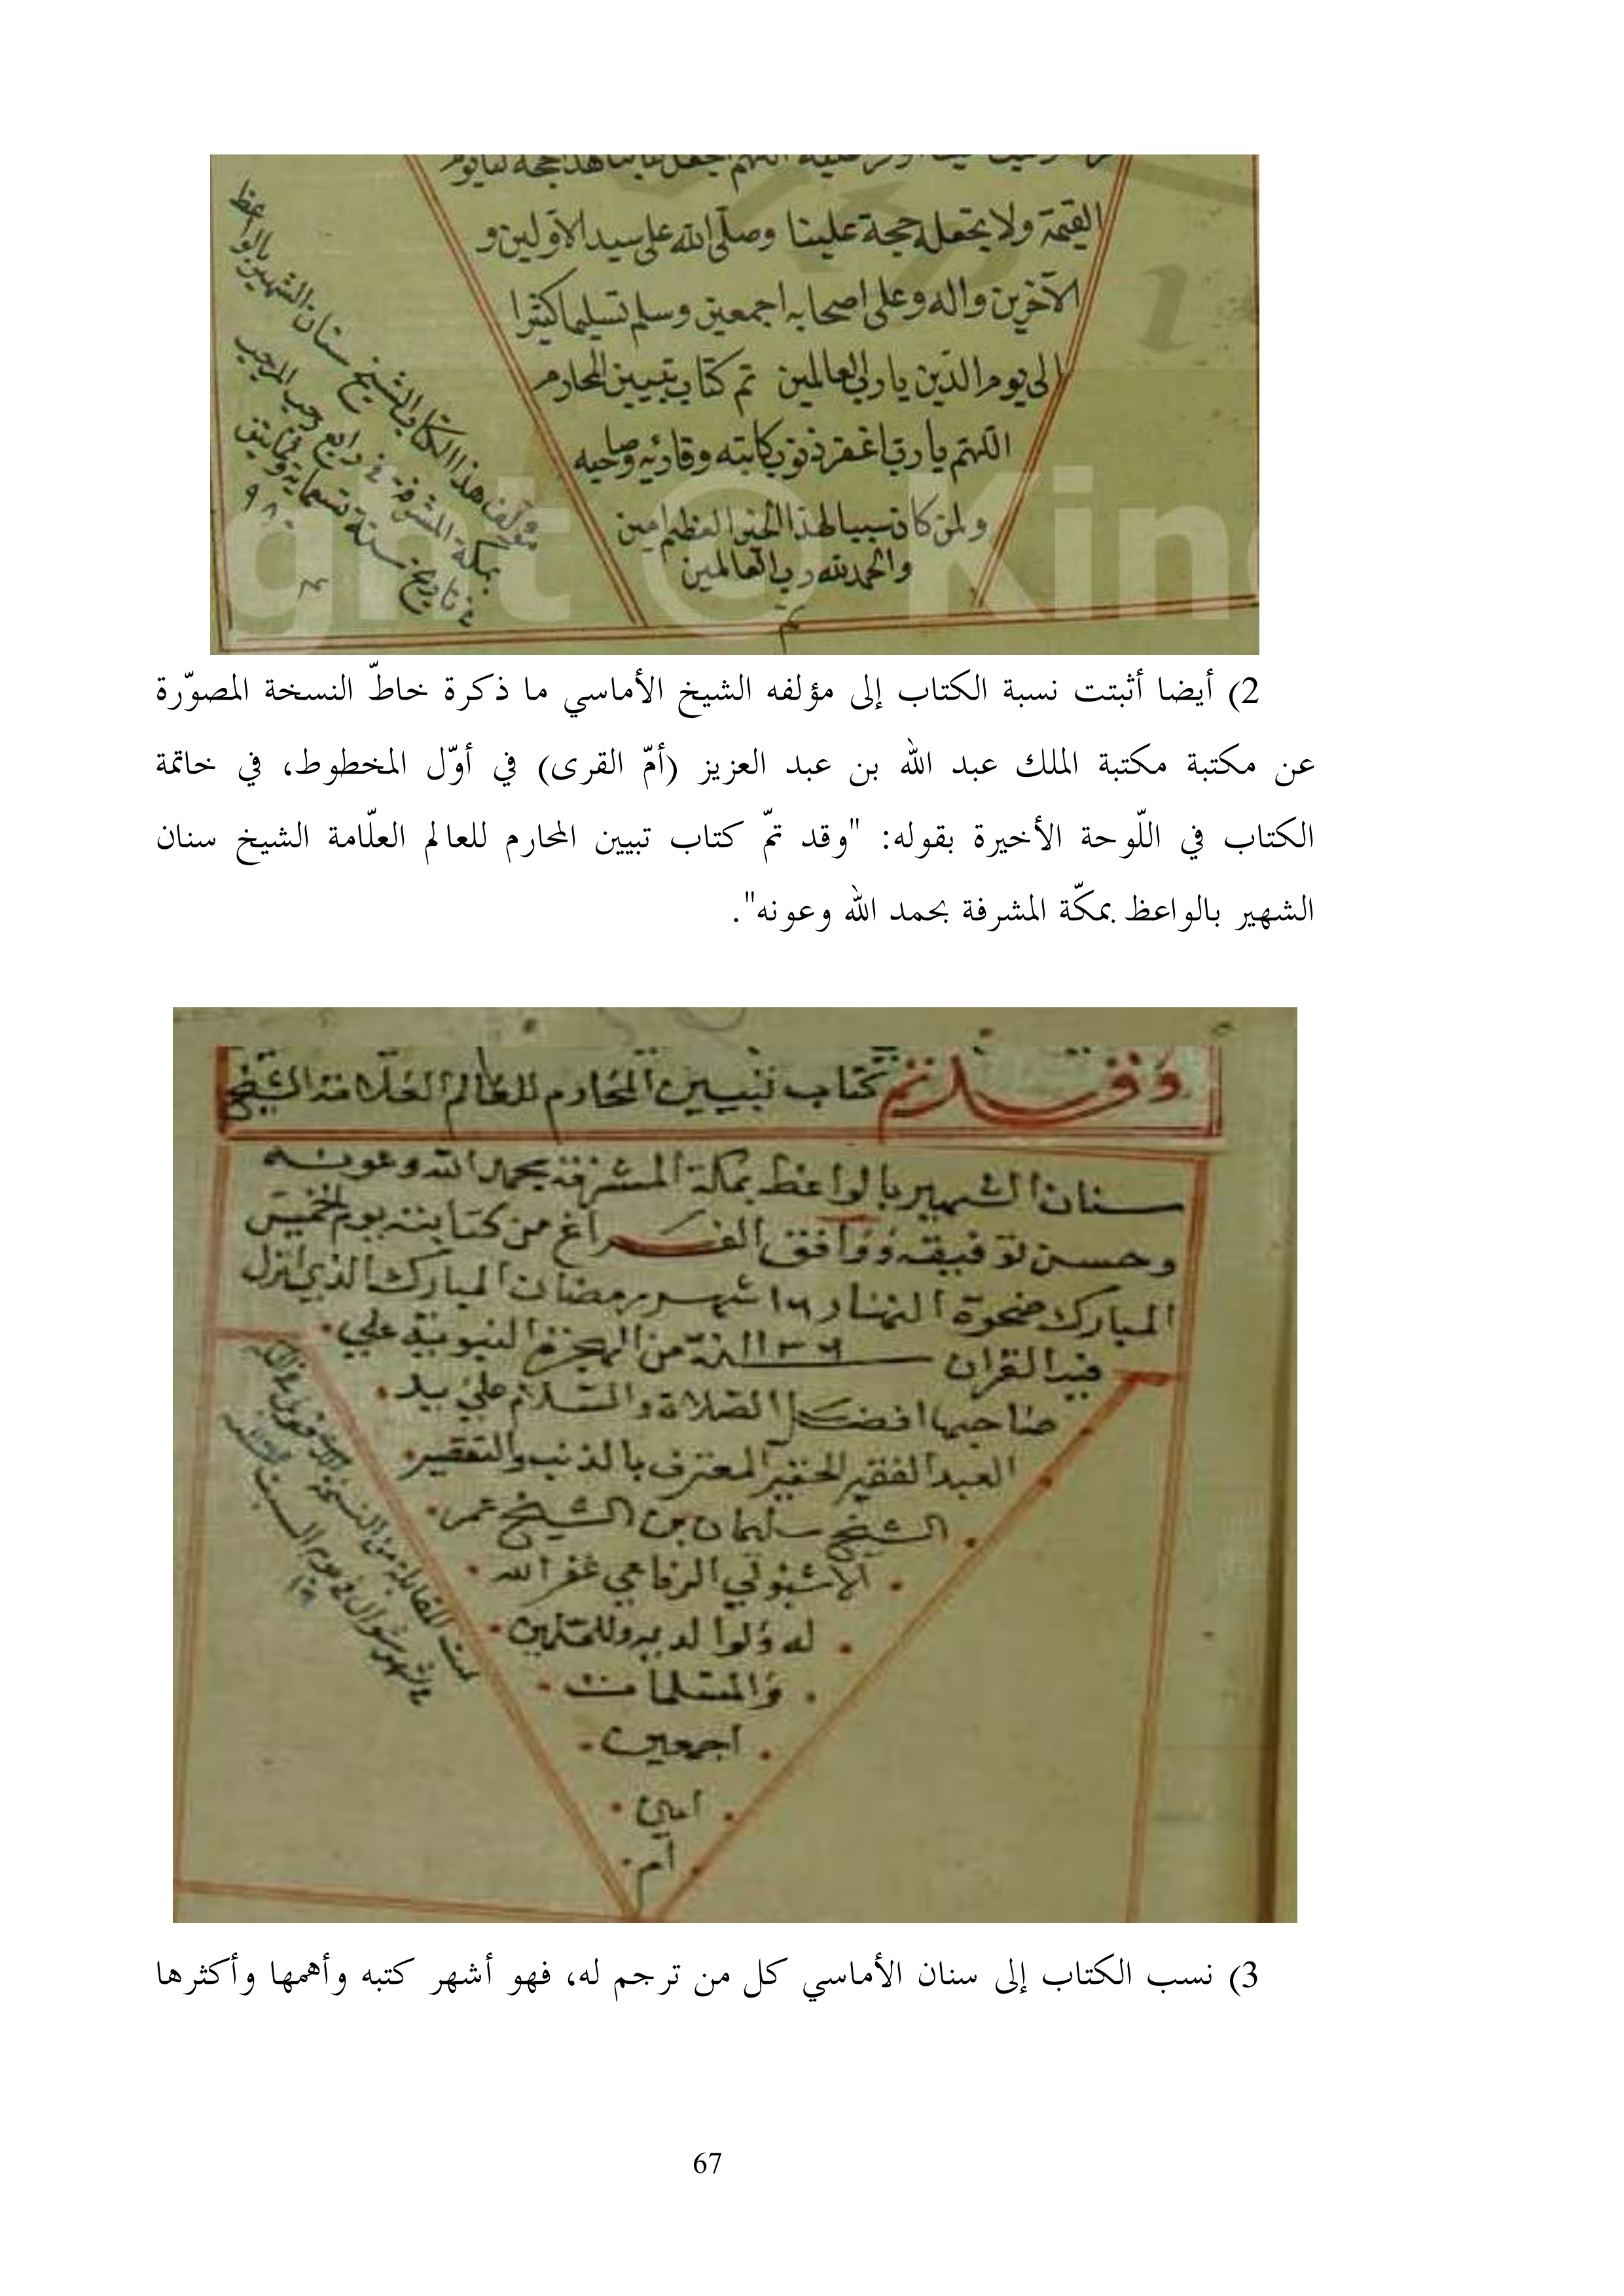 القيمة ولا يجعله حجة علينا وصلى الله على سيد الاولين و
الآخرين واله وعلى اصحابه اجمعين وسلم تسليما كثيرا
الى يوم الدين يا رب العالمين تم كتاب تبيين المحارم
اللهم يا رب اغفر ذنوب كاتبه وقاريه وصاحبه
ولمن كان سببا لهذا الخير العظيم امين
والحمد لله رب العالمين
تم
مؤلف هذا الكتاب الشيخ سنان الشهير بالواعظ
بمكة المشرفة في رابع رجب المرجب
في تاريخ سنة تسعماية وثمانين
٩٨٠
ght © Kin
2) أيضا أثبتت نسبة الكتاب إلى مؤلفه الشيخ الأماسي ما ذكرة خاطّ النسخة المصوّرة
عن مكتبة مكتبة الملك عبد الله بن عبد العزيز (أمّ القرى) في أوّل المخطوط، في خاتمة
الكتاب في اللّوحة الأخيرة بقوله: "وقد تمّ كتاب تبيين المحارم للعالم العلّامة الشيخ سنان
الشهير بالواعظ بمكّة المشرفة بحمد الله وعونه".
وقد تم كتاب تبيين المحارم للعالم العلامة الشيخ
سنان الشهير بالواعظ بمكة المشرفة بحمد الله وعونه
وحسن توفيقه ووافق الفراغ من كتابته يوم الخميس
المبارك ضحوة النهار ١٦ شهر رمضان المبارك الذي انزل
فيه القران سنة ١١٣٦ من الهجرة النبوية على
صاحبها افضل الصلاة والسلام على يد
العبد الفقير الحقير المعترف بالذنب والتقصير
الشيخ سليمان بن الشيخ عمر
الرفاعي غفر الله
له ولوالديه وللمسلمين
والمسلمات
اجمعين
امين
تمت المقابلة من النسخة
شهر شوال في يوم السبت
3) نسب الكتاب إلى سنان الأماسي كل من ترجم له، فهو أشهر كتبه وأهمها وأكثرها
67